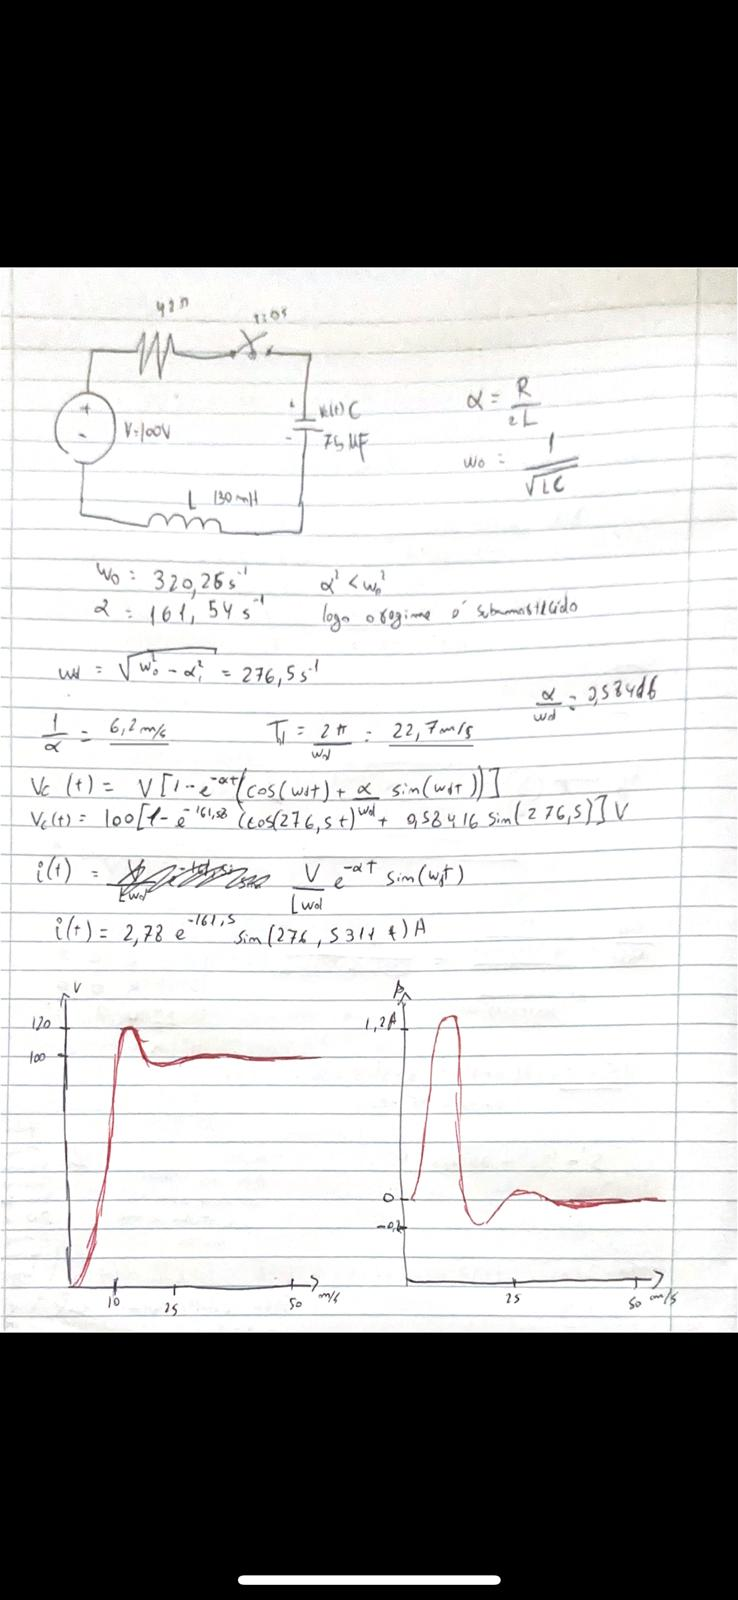 42Ω
t=0s
+
-
V=100V
+
Vc(t) C
-
75 μF
L 130 mH
α = R/2L
wo = 1/√LC
Wo = 320,26 s⁻¹ α² < wo²
α = 161,54 s⁻¹ logo o regime é
wd = √wo² - α² = 276,5 s⁻¹
α/wd = 0,58416
1/α = 6,2 m/s Td = 2π/wd = 22,7 m/s
Vc (t) = V [1 - e^-αt (cos(wdt) + α/wd sin(wdt))]
Vc(t) = 100 [1 - e^-161,53 (cos(276,5t) + 0,58416 sin(276,5)] V
i(t) = V/Lwd e^-αt sin(wdt)
i(t) = 2,78 e^-161,5 sin(276,5311 t) A
V
120
100
10
25
50
m/s
1,2A
0
-0,2
25
50 m/s